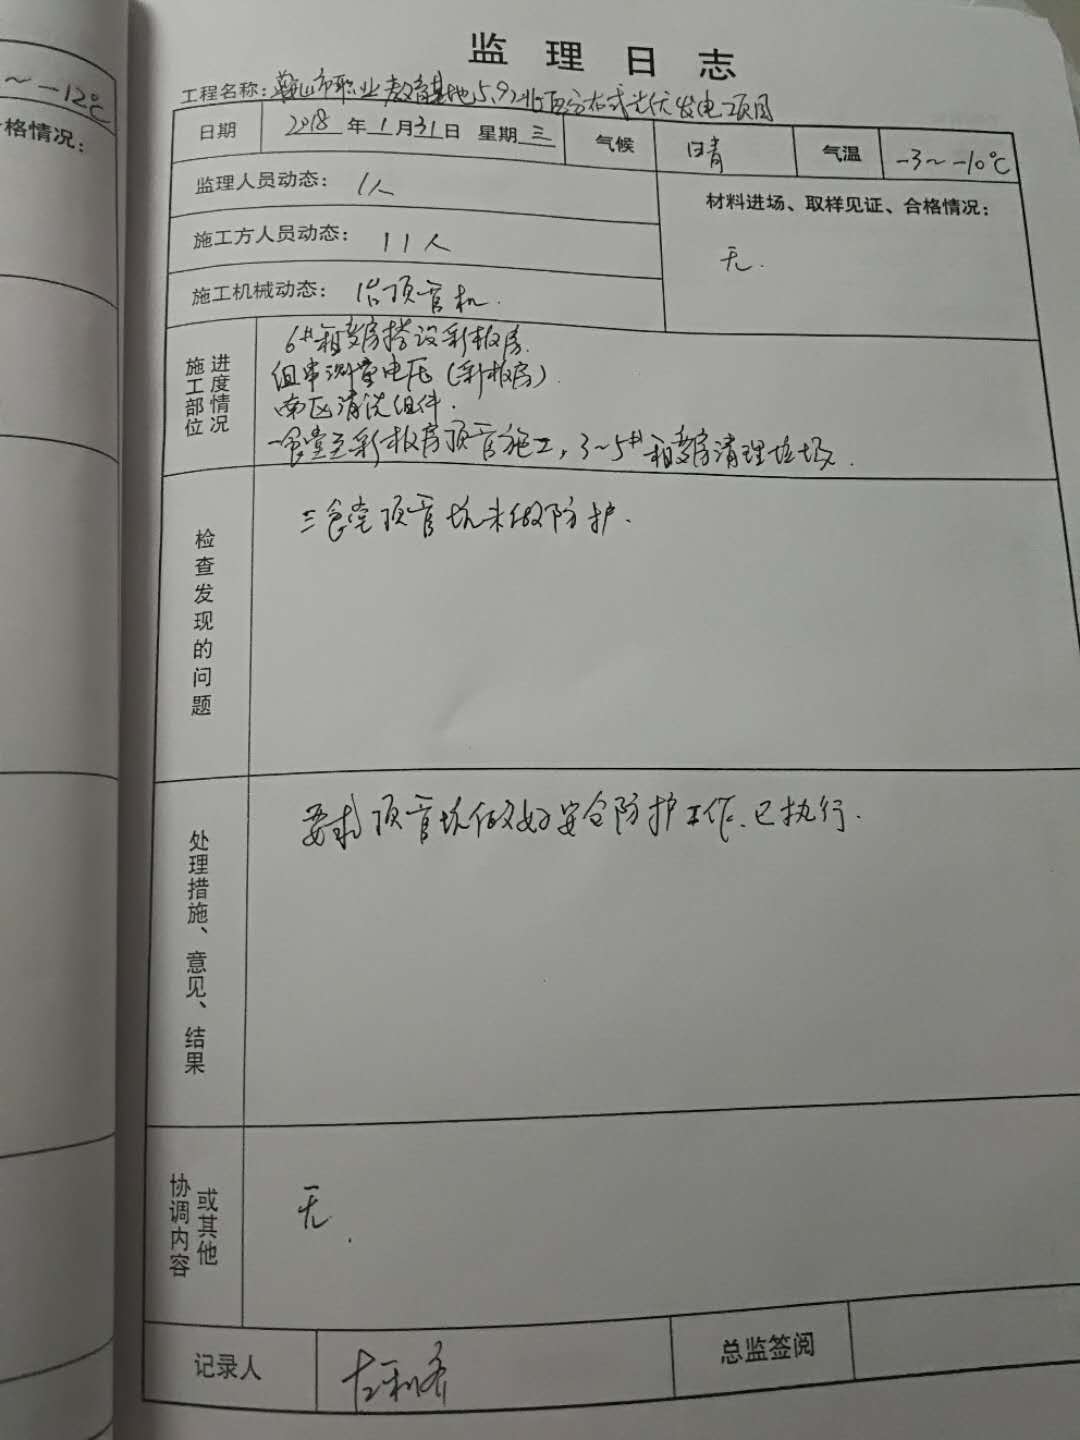 ~-12℃
格情况：
监理日志
工程名称：鞍山市职业教育基地5.92兆瓦分布式光伏发电项目
日期 2018年1月31日 星期三 气候 晴 气温 -3~-10℃
监理人员动态：1人
材料进场、取样见证、合格情况：
无.
施工方人员动态：11人
施工机械动态：1台顶管机.
施工部位进度情况
6#租赁房搭设彩板房.
组串测量电压（彩板房）.
南区清洗组件.
一食堂至彩板房顶管施工，3~5#租赁房清理垃圾.
检查发现的问题
三食堂顶管坑未做防护.
处理措施、意见、结果
要求顶管坑做好安全防护工作.已执行.
协调内容或其他
无.
记录人 总监签阅